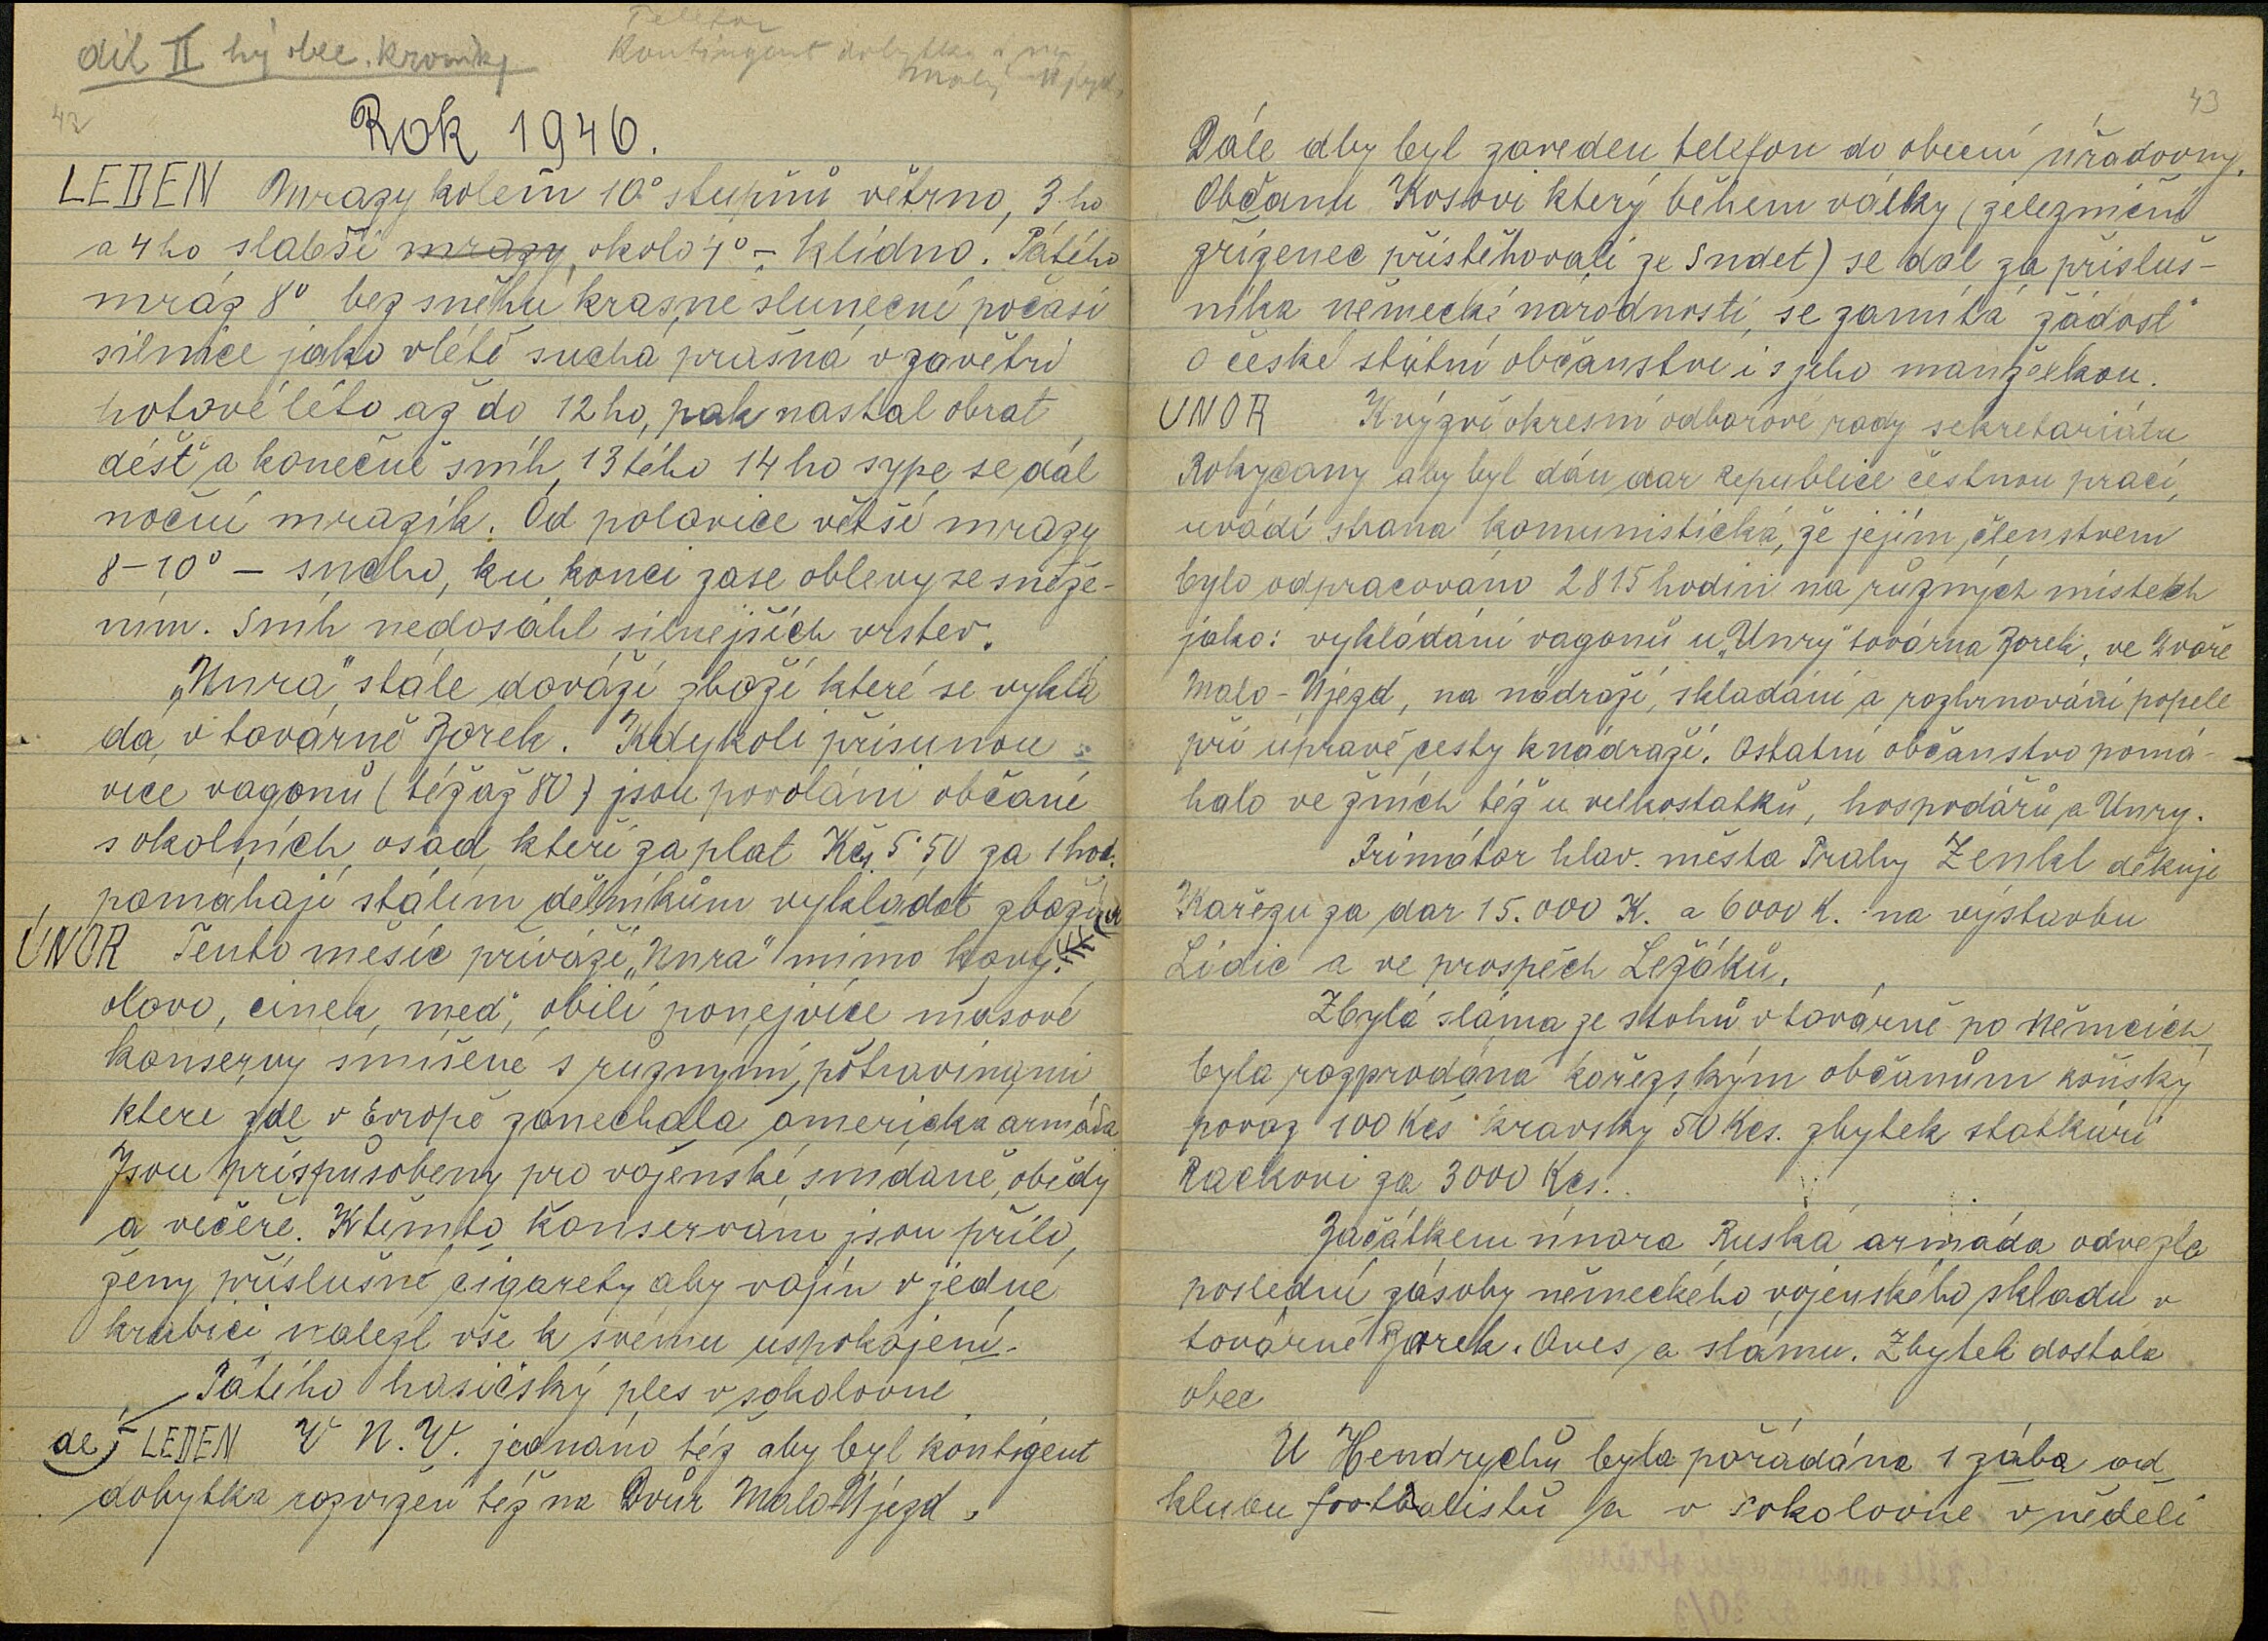 díl II hý obec. kroniky
Telefon
Kontingent dobytka
42
Rok 1946.
LEDEN Mrazy kolem 10° stupňů větrno, 3-ho
a 4 ho slabší mrazy, okolo 4° – klidno. Pátého
mráz 8° bez sněhu krasne slunečné počasí
silnice jako vlétě suchá prašná v závětří
hotové léto až do 12 ho, pak nastal obrat
déšť a konečně sníh, 13tého 14 ho sype se dál
noční mrazík. Od polovice větší mrazy
8–10° – sucho, ku konci zase oblevy se sněže-
ním. Sníh nedosáhl silnejších vrstev.
„Unra" stále dováží zboží které se vyklá
dá, v továrně Zorek. Kdykoli přisunou
vice vagonů (též až 80) jsou povoláni občané
s okolních osad, kteří za plat Kčs 5·50 za 1 hod.
pomahají stálím dělníkům vykladat zboží
ÚNOR Tento měsíc přiváží „Unra" mimo kovy:
olovo, cinek, med", obilí ponejvíce masové
konservy smíšené s různými potravinami
ktere zde v Evropě zanechala americka armáda
Jsou přispůsobeny pro vojenské snídaně, obědy
a večeře. K těmto konservám jsou přilo,
ženy příslušné cigarety aby vojín v jedné
krabici nalezl vše k svému uspokojení.
Pátého hasičský ples v sokolovně
LEDEN V N.V. jednáno též aby byl kontigent
dobytka rozvržen též na Dvůr Malo-Újezd.
43
Dále aby byl zaveden telefon do obecní úřadovny.
Občanu Kosovi který během války (železniční
zřízenec přistěhovalí ze Sudet) se dal za přísluš-
níka německé národnosti, se zamítá žádost
o české státní občanstvi i s jeho manželkou.
ÚNOR K výzvě okresní odborové rady sekretariátu
Rokycany aby byl dán dar Republice čestnou prací,
uvádí strana komunistická, že jejím členstvem
bylo odpracováno 2815 hodin na různých místech
jako: vykládání vagonů u „Unry" továrna Zorek, ve Dvoře
Malo-Újezd, na nádraží, skladání a rozhrnování popele
při úpravě cesty k nádraží. Ostatní občanstvo pomá-
halo ve žních též u velkostatků, hospodářů a Unry.
Primátor hlav. města Prahy Zenkl děkuje
Kařezu za dar 15.000 K. a 6000 K. na výstavbu
Lidic a ve prospěch Ležáků.
Zbylá sláma ze stohů v továrně po Němcích
byla rozprodána kařezským občanům koňský
povoz 100 Kčs kravský 50 Kčs. zbytek statkáři
Rackovi za 3000 Kčs.
Začátkem února Ruská armáda odvezla
poslední zásoby německého vojenského skladu v
továrně Zorek. Oves a slámu. Zbytek dostala
obec
U Hendrychů byla pořádána 1 zába od
klubu footbalistů a v sokolovne v neděli